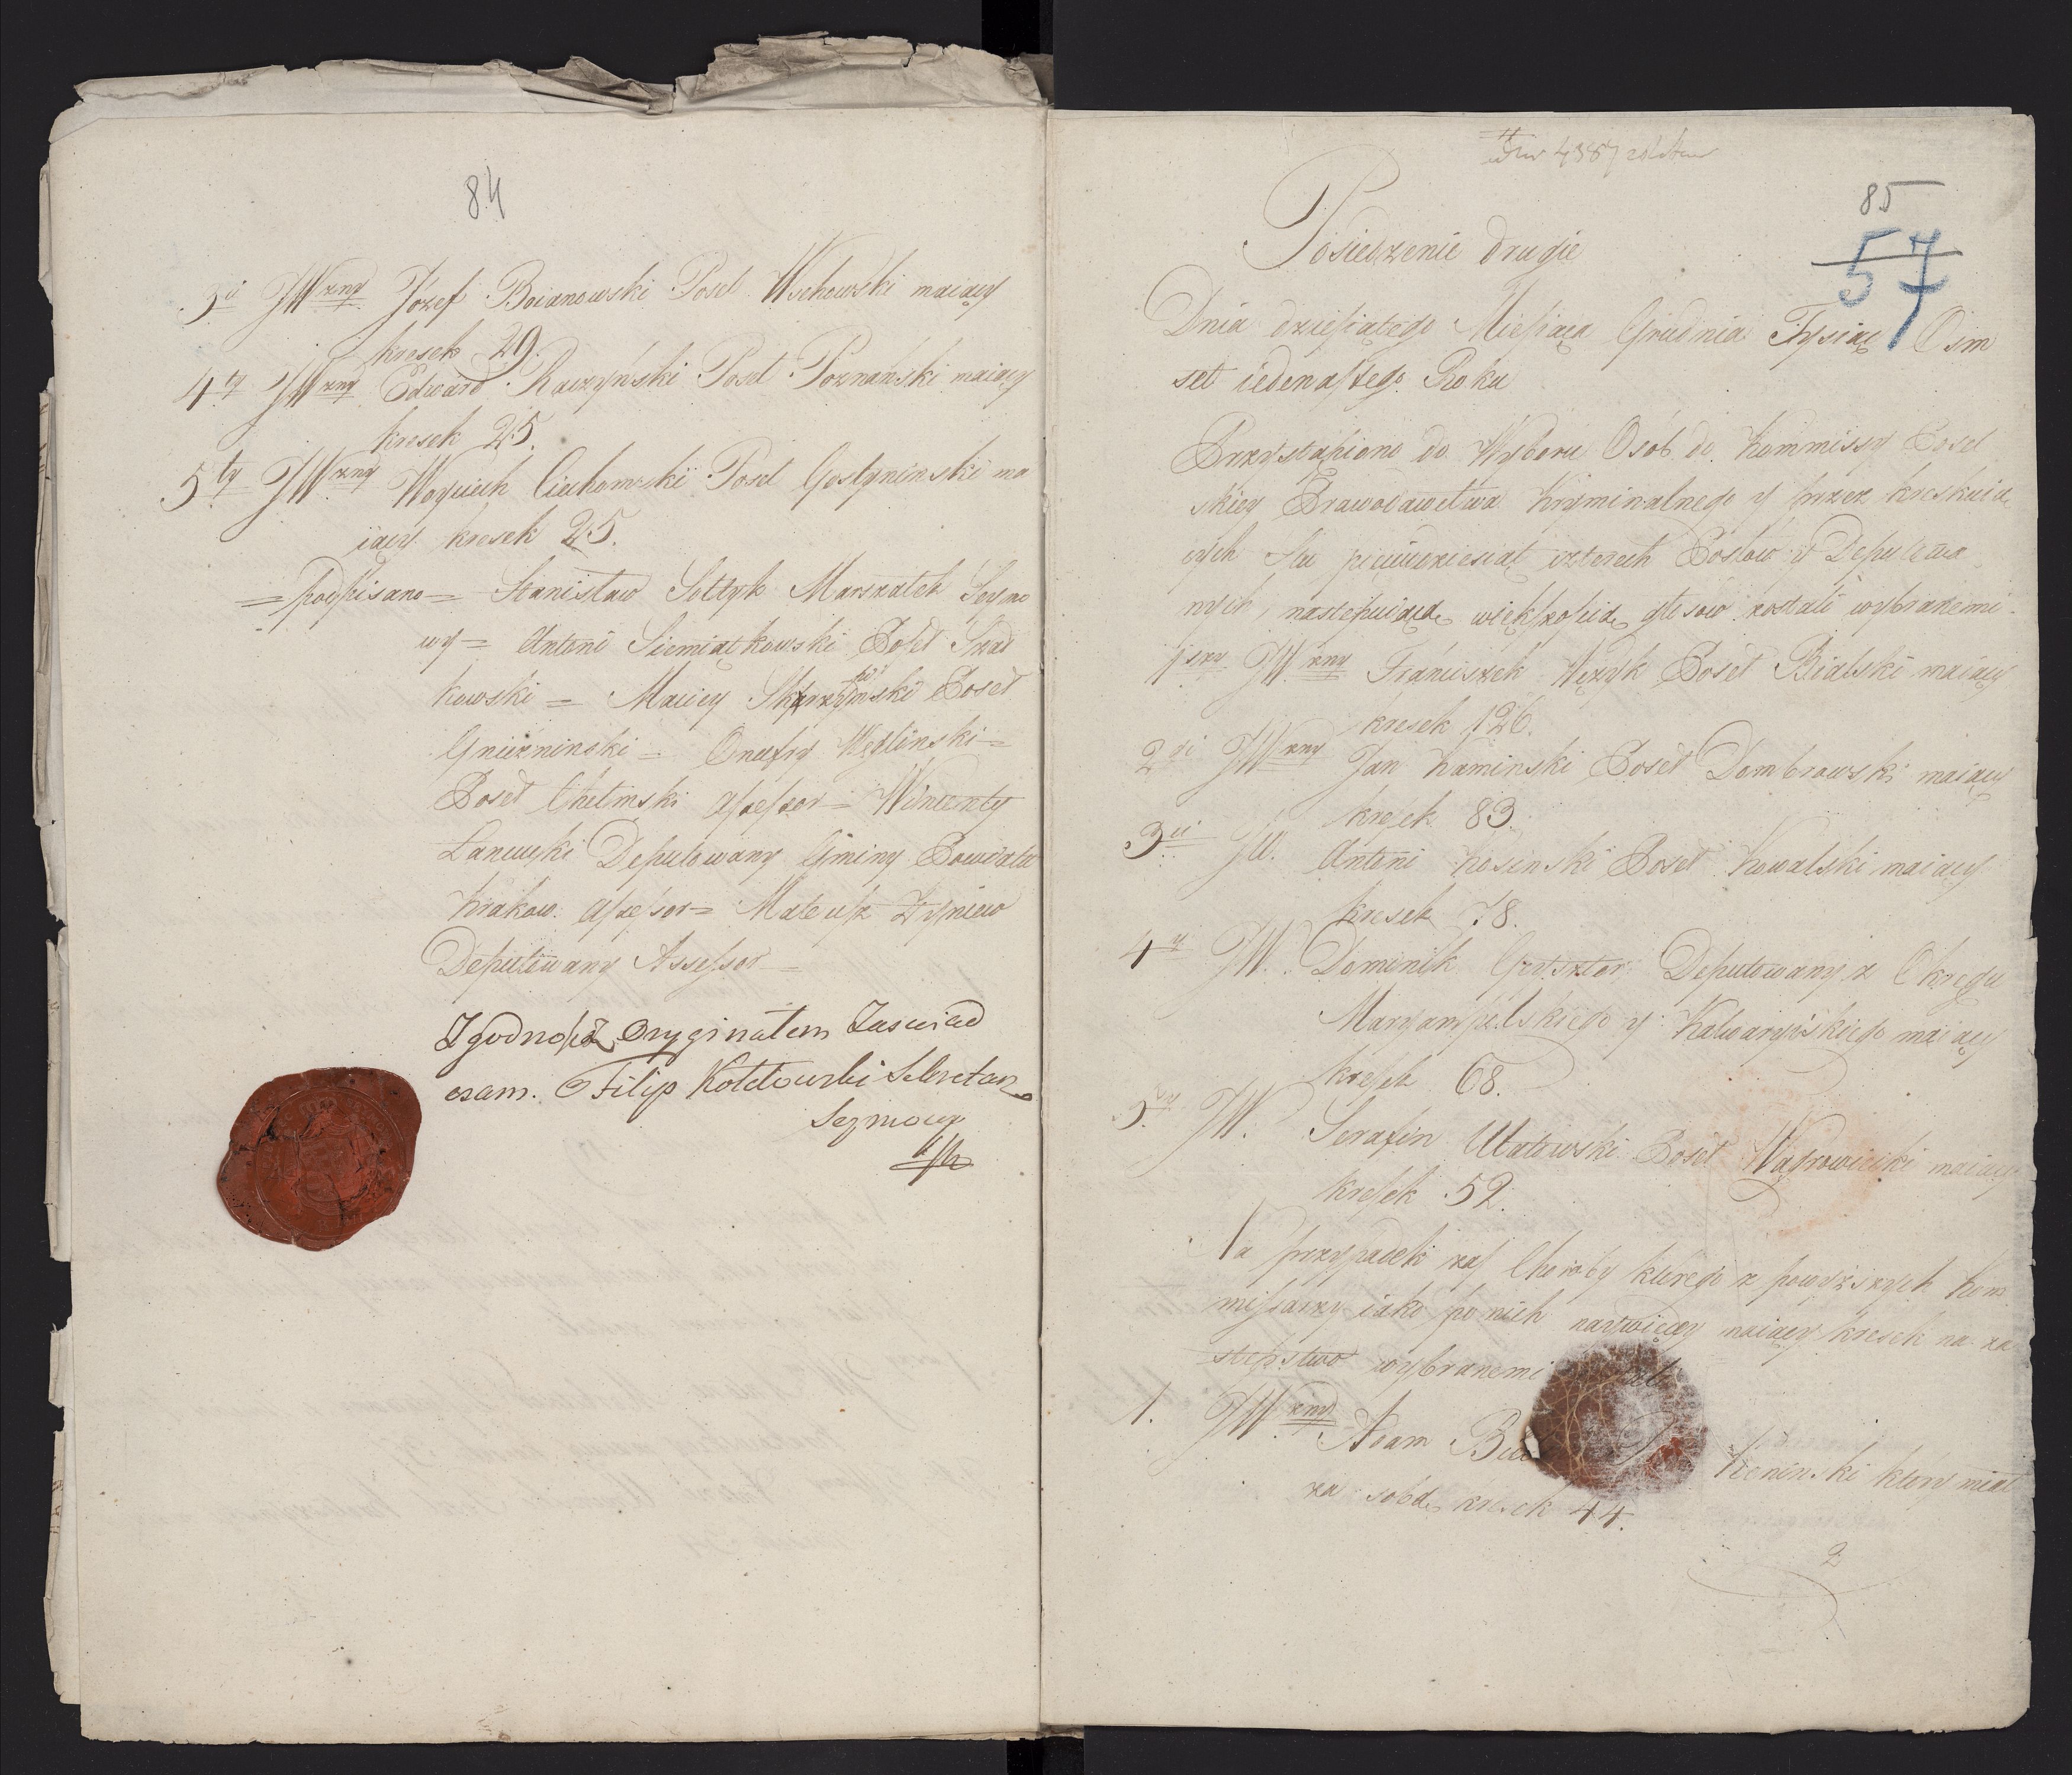 84
3i JWzny Józef Boianowski Poseł Wschowski maiący
kresek 29.
4ty JWzny Edward Raczyński Poseł Poznański maiący
kresek 25.
5ty JWzny Woyciech Ciechomski Poseł Gostyninski ma
iący kresek 25.
= podpisano = Stanisław Sołtyk Marszałek Seymo
wy = Antoni Siemiątkowski Poseł Szad
kowski = Maciey Poseł
Gnieźninski = Onufry Węglinski =
Poseł Chełmski Assessor = Wincenty
Łancucki Deputowany Gminy Powiatu
Krakow. Assessor = Mateusz
Deputowany Assessor =
Zgodność z Oryginałem Zaswiad
czam. Filip Kołdowski Sekretarz
Seymowy
85
57
Posiedzenie drugie
Dnia dziesiątego Miesiąca Grudnia Tysiąc Osm
set iedenastego Roku
Przystąpiono do Wyboru Osób do Kommissyi Posel
skiey Prawodawctwa Kryminalnego y przez kreskuią
cych stu pięcudziesiąt czterech Posłów y Deputowa
nych, nastepuiące większoscią głosow zostali wybranemi.
1szy JWzny Franciszek Wężyk Poseł Bialski maiący
kresek 126.
2gi JWzny Jan Kaminski Poseł Dombrowski maiący
kresek 83.
3ci JW. Antoni Kosinski Poseł Kowalski maiący
kresek 78.
4y JW. Dominik Deputowany z Okręgu
Maryampolskiego y Kalwaryiskiego maiący
kresek 68.
5ty JW. Serafin Ulatowski Poseł Wągrowiecki maiący
kresek 52.
Na przypadek zaś Choroby ktorego z powyższych Kom
missarzy iako po nich naywięcey maiący kresek na za
stępstwo wybranemi
1. JWzny Adam Koninski ktory miał
za sobą kresek 44.
2